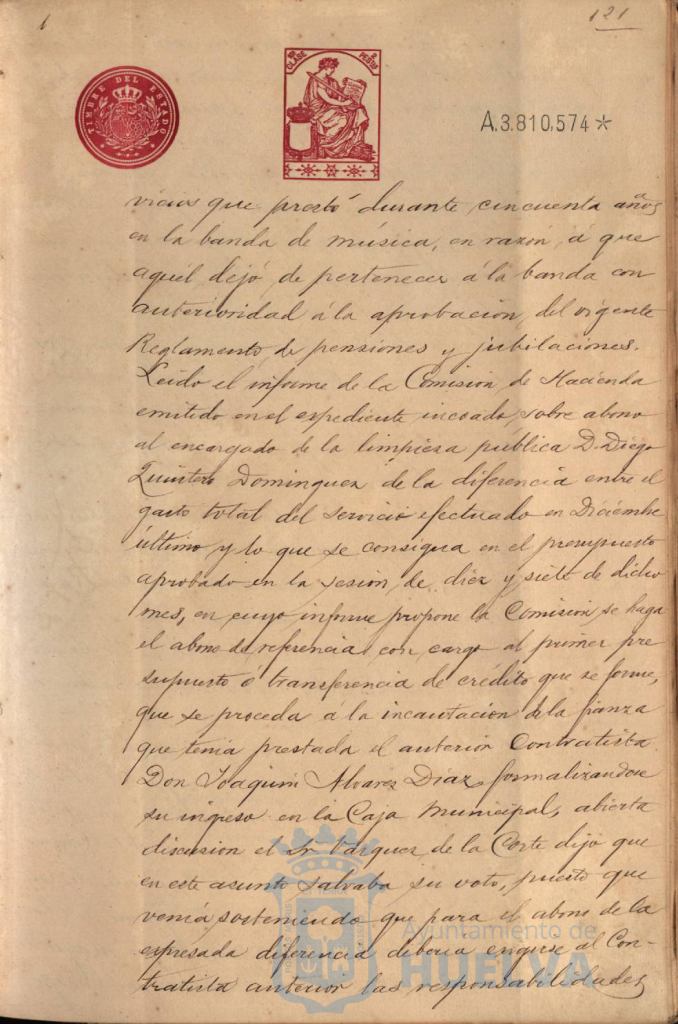 1
121
TIMBRE DEL ESTADO
CLASE
2 PESETAS
A.3.810,574 *
vicios que prestó durante cincuenta años
en la banda de música, en razón á que
aquél dejó de pertenecer á la banda con
anterioridad á la aprobacion, del vigente
Reglamento de pensiones y jubilaciones.
Leido el informe de la Comisión de Hacienda
emitido en el expediente incoado, sobre abono
al encargado de la limpieza pública D. Diego
Quintero Dominguez de la diferencia entre el
gasto total del servicio efectuado en Diciembre
último, y lo que se consigna en el presupuesto
aprobado en la sesión de diez y siete de dicho
mes, en cuyo informe propone la Comisión se haga
el abono de referencia con cargo al primer pre
supuesto ó transferencia de crédito que se forme,
que se proceda á la incautacion de la fianza
que tenia prestada el anterior Contratista
Don Joaquin Alvarez Diaz, formalizandose
su ingreso en la Caja Municipal, abierta
discusion el Sr Vazquez de la Corte dijo que
en este asunto salvaba su voto, puesto que
venia sosteniendo que para el abono de la
expresada diferencia deberia exigirse al Con-
tratista anterior las responsabilidades
Ayuntamiento de
HUELVA